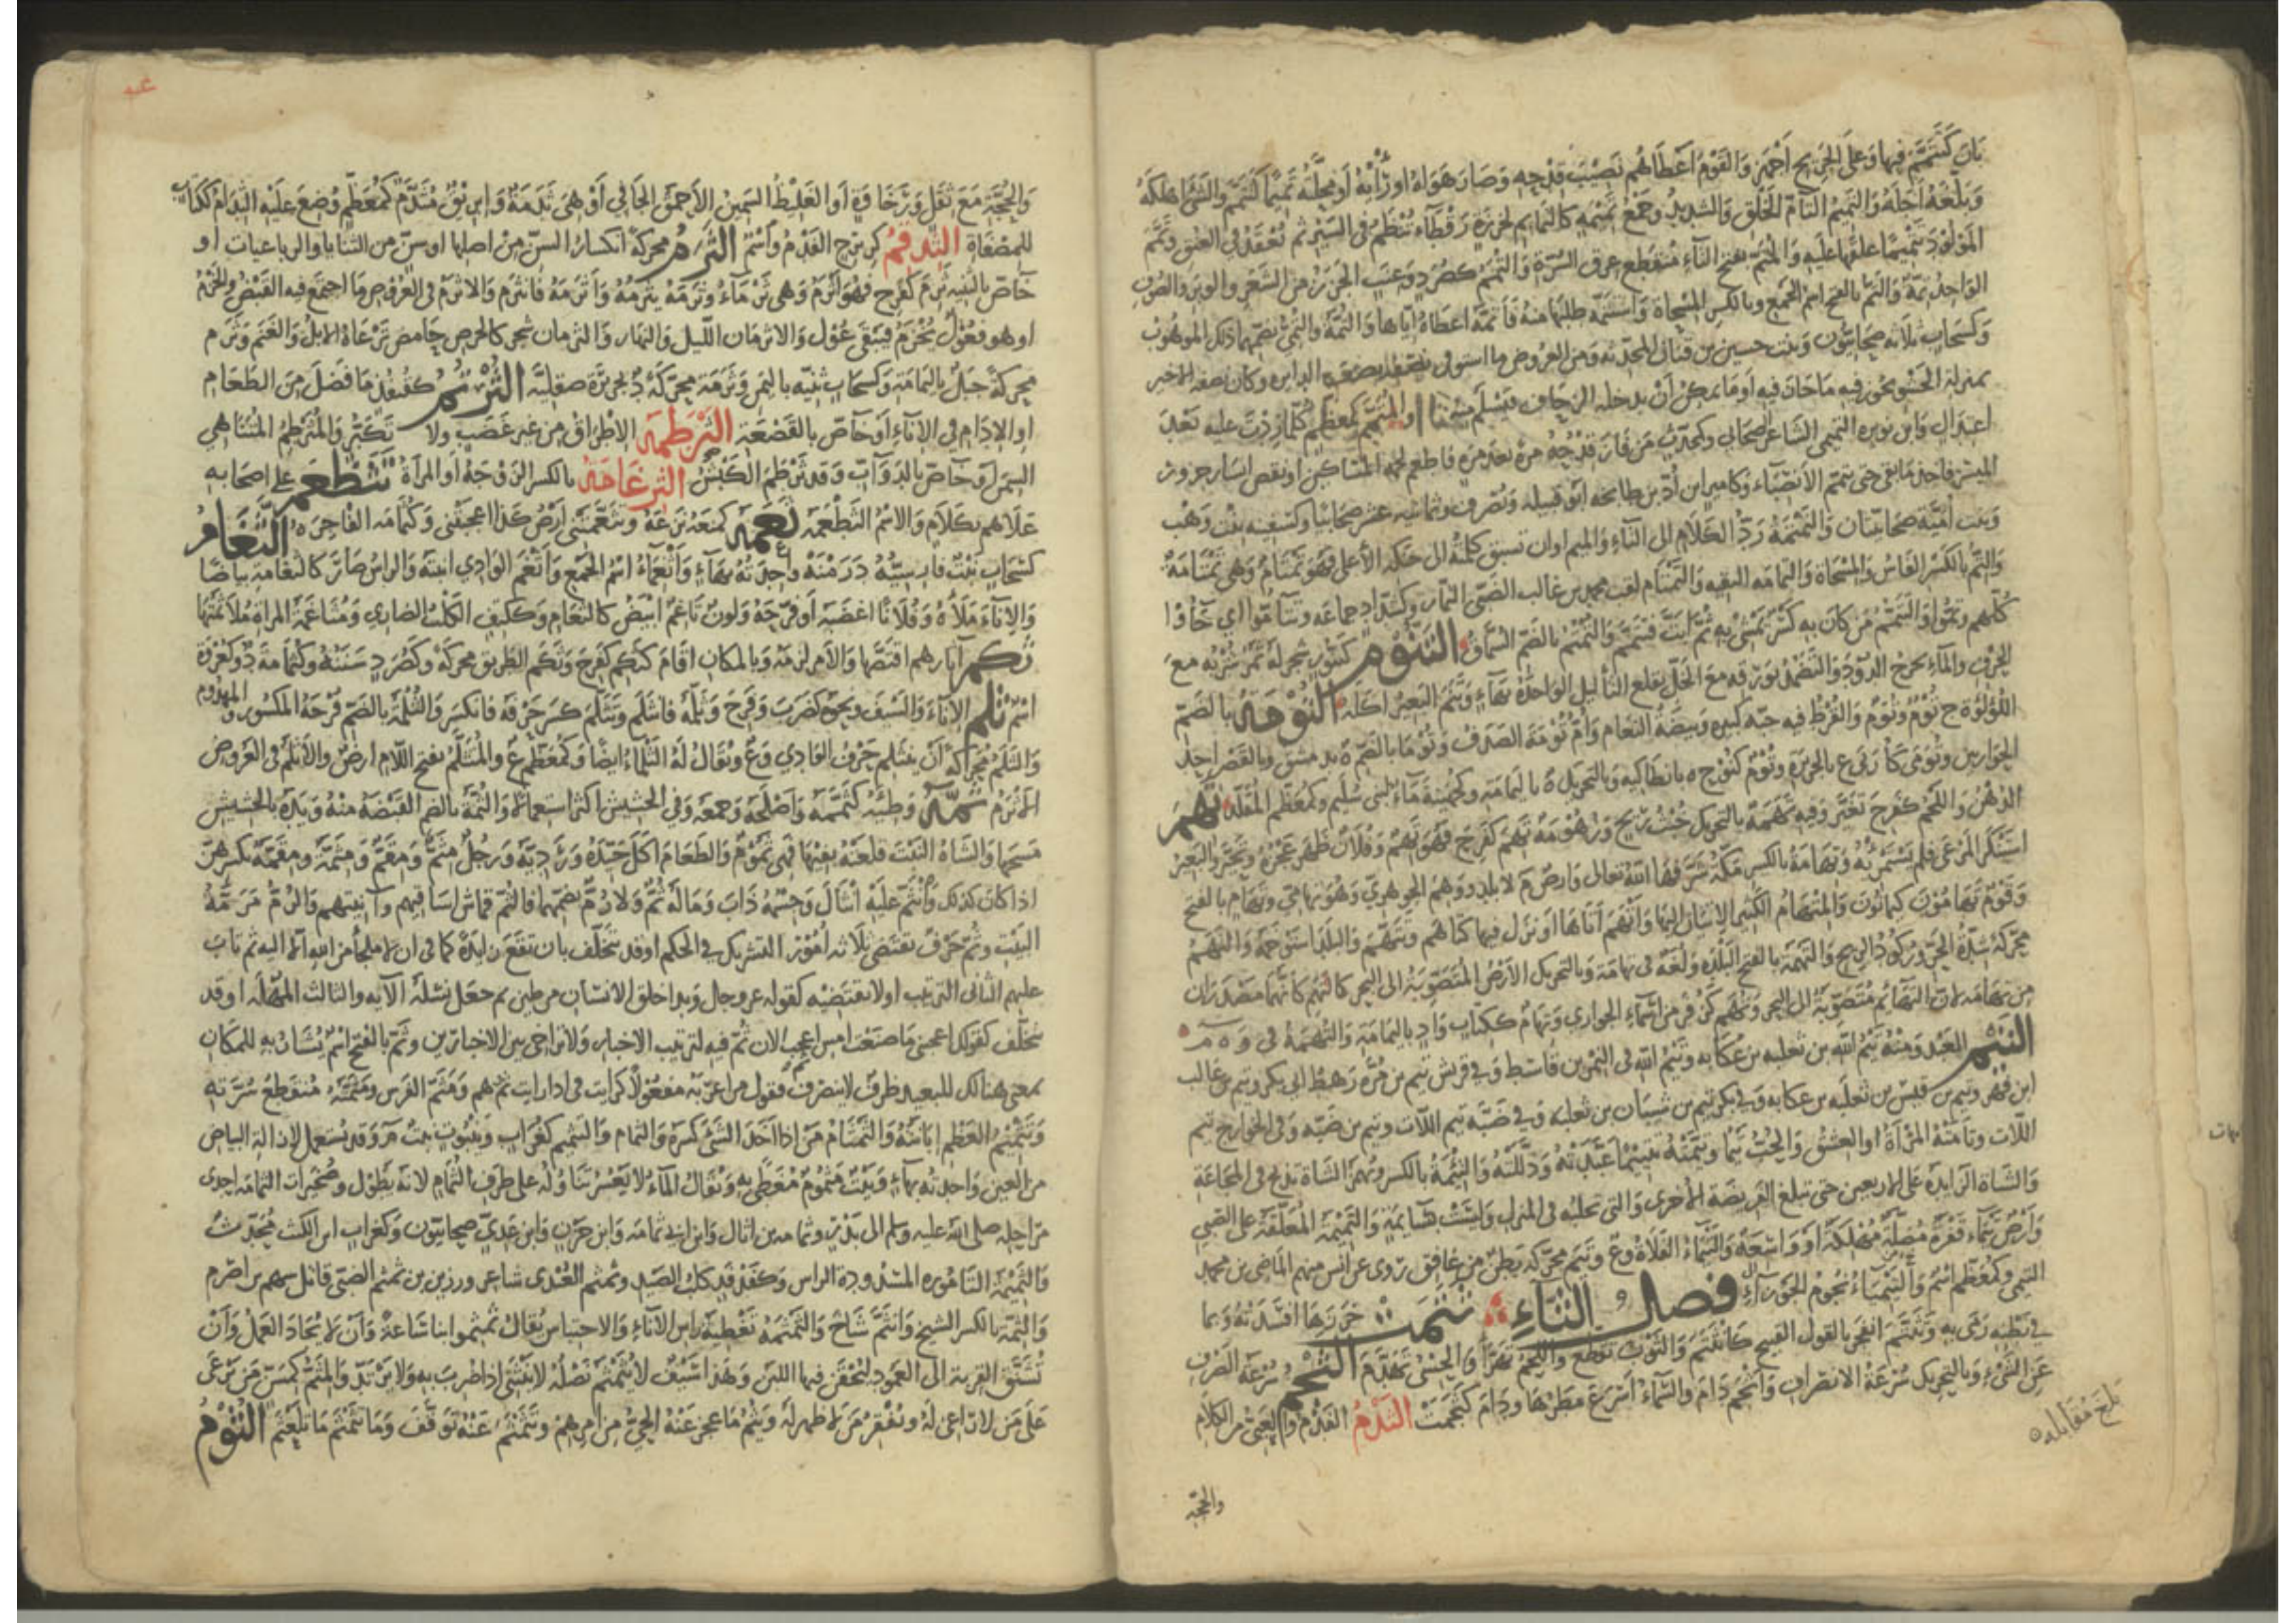 بان كتتمم فيها وعلى الجريح اجهز والقوم اعطاهم نصيب قدحه وصار هواه او رأيه او محلته تميما كتتمم والشئ اهلكه
وبلغه اجله والتميم التام الخلق والشديد وجمع تميمة كالتمايم لخرزة رقطاء تنظم في السير ثم تعقد في العنق وتمم
المولود تتميما علقها عليه والمتم بفتح التاء منقطع عرق السرة والتمم كصرد وعنب الجزز من الشعر والوبر والصوف
الواحد تمة والتم بالفتح اسم الجمع وبالكسر المسحاة واستتمه طلبها منه فاتمه اعطاه اياها والتمة والتمى بضمهما ذلك الموهوب
وكسحاب ثلاثة صحابيون وبنت حسين بن قنان المحدثة ومن العروض ما استوفى نصفه نصف الدايرة وكان نصفه الاخير
بمنزلة الحشو يجوز فيه ما جاز فيه او ما يمكن ان يدخله الزحاف فيسلم منه او المتمم كمعظم كلما زدت عليه بعد
اعتدال وابن نويرة التميمي الشاعر الصحابي وكمحدث من فاز قدحه مرة بعد مرة فاطعم لحمه المساكين او نقص ايسار جزور
الميسر فاخذ ما بقي حتى يتمم الانصباء وكامير ابن اد بن طابخة ابو قبيلة ويصرف وثمانية عشر صحابيا وكسفينة بنت وهب
وبنت امية صحابيتان والتمتمة رد الكلام الى التاء والميم او ان تسبق كلمته الى حنكه الاعلى فهو تمتام وهي تمتامة
والتم بالكسر الفاس والمسحاة والتمامة البقية والتمتام لقب محمد بن غالب الضبي التمار وكشداد جماعة وتتاموا اي جاؤا
كلهم وتموا والتتمم من كان به كسر يمشي به ثم ابت فتتمم والتمتم بالضم السماق التنوم كتنور شجر له ثمر شربه مع
الحرف والماء يخرج الدود والتضمد بورقه مع الخل يقلع الثآليل الواحدة بهاء وتنم البعير اكله التومة بالضم
اللؤلؤة ج توم وتوم والقرط فيه حبة كبيرة وبيضة النعام وام تومة الصدف وتوما بالضم ة بدمشق وبالقصر احد
الحواريين وتومى كاربى ع بالجزيرة وتوم كنوح ة بانطاكية وبالتحريك ة باليمامة وكجهينة ماء لبني سليم وكمعظم المقلد تهم
الدهن واللحم كفرح تغير وفيه تهمة بالتحريك خبث ريح وزهومة تهم كفرح فهو تهم وفلان ظهر عجزه وتحير والبعير
استنكر المرعى فلم يستمرئه وتهامة بالكسر مكة شرفها الله تعالى وارض م لا بلد ووهم الجوهري وهو تهامي وتهام بالفتح
وقوم تهامون كيمانون والمتهام الكثير الاتيان اليها واتهم اتاها او نزل فيها كتاهم وتتهم والبلد استوخمه والتهم
محركة شدة الحر وركود الريح والتهمة بالفتح البلدة ولغة في تهامة وبالتحريك الارض المتصوبة الى البحر كالتهم كانهما مصدران
من تهامة لان التهايم متصوبة الى البحر وتهم كزفر من اسماء الجواري وتهام ككتاب واد باليمامة والتهمة في وه م
التيم العبد ومنه تيم الله بن ثعلبة بن عكابة وتيم الله في النمر بن قاسط وفي قريش تيم بن مرة رهط ابي بكر وتيم بن غالب
ابن فهر وتيم بن قيس بن ثعلبة بن عكابة وفي بكر تيم بن شيبان بن ثعلبة وفي ضبة تيم اللات وتيم بن ضبة وفي الخزارج تيم
اللات وتامته المراة او العشق والحب تيما وتيمته تتييما عبدته وذللته والتيمة بالكسر ويهمز الشاة تذبح في المجاعة
والشاة الزايدة على الاربعين حتى تبلغ الفريضة الاخرى والتي تحلب في المنزل وليست بسايمة والتميمة المعلقة على الصبي
وارض تيماء قفرة مضلة مهلكة او واسعة والتيماء الفلاة وع وتيم محركة بطن من غافق روى عن انس منهم الماضي بن محمد
التيمي وكمعظم اسم والتيماء نجوم الجوزاء فصل الثاء ثتمت خرزها افسدته وبما
في بطنه رمى به وتثتم انفجر بالقول القبيح كانثتم والثوب تقطع واللحم تهرا والحسى تهدم الثجم سرعة الصرف
عن الشئ وبالتحريك سرعة الانصراف واثجم دام والسماء اسرع مطرها ودام كثجمت الثدم الفدم والعيي من الكلام
والحجة
بلغ مقابلة
والحجة مع ثقل ورخاوة او الغليظ السمين الاحمق الجافي او هي ثدمة وابريق مثدم كمعظم وضع عليه الثدام ككتاب
للمصفاة الثدقم كزبرج الفدم واسم الثرم محركة انكسار السن من اصلها او سن من الثنايا والرباعيات او
خاص بالثنية ثرم كفرح فهو اثرم وهي ثرماء وثرمه يثرمه واثرمه فانثرم والاثرم في العروض ما اجتمع فيه القبض والخرم
او هو فعول يخرم فيبقى عول والاثرمان الليل والنهار والثرمان شجر كالحرض حامض ترعاه الابل والغنم وثرم
محركة جبل باليمامة وكسحاب ثنية باليمن وثرمة محركة د بجزيرة صقلية الثرتم كقنفذ ما فضل من الطعام
او الادام في الاناء او خاص بالقصعة الثرطمة الاطراق من غير غضب ولا تكبر والمثرطم المتناهي
السمن او خاص بالدواب وقد ثرطم الكبش الثرعامة بالكسر الزوجة او المراة تثطعم على اصحابه
علاهم بكلام والاسم الثطعمة ثعمه كمنعه نزعه وتثعمتني ارض كذا اعجبتني وكثمامة الفاجرة الثغام
كسحاب نبت فارسيته درمنه واحدته بهاء واثغماء اسم الجمع واثغم الوادي انبته والراس صار كالثغامة بياضا
والاناء ملاه وفلانا اغضبه او فرحه ولون ثاغم ابيض كالثغام وككتف الكلب الضاري ومثاغمة المراة ملاثمتها
ثكم اثارهم اقتصها والامر لزمه وبالمكان اقام كثكم كفرح وثكم الطريق محركة وكصرد سننه وكثمامة د وكغرفة
اسم ثلم الاناء والسيف ونحوه كضرب وفرح وثلمه فانثلم وتثلم كسر حرفه فانكسر والثلمة بالضم فرجة المكسور والمهدوم
والثلم محركة ان ينثلم حرف الوادي وع ويقال له الثلماء ايضا وكمعظم ع والمتثلم بفتح اللام ارض والاثلم في العروض
الاثرم ثمه وطئه كثممه واصلحه وجمعه وفي الحشيش اكثر استعمالا والثمة بالضم القبضة منه ويده بالحشيش
مسحها والشاة النبت قلعته بفيها فهي ثموم والطعام اكل جيده ورديئه ورجل مثم ومقم ومثمة ومقمة بكسرهن
اذا كان كذلك وانثم عليه انثال وجسمه ذاب وما له ثم ولا رم بضمهما فالثم قماش اساقيهم وآنيتهم والرم مرمة
البيت وثم حرف يقتضي ثلاثة امور التشريك في الحكم او قد يتخلف بان تقع زايدة كما في ان لا ملجأ من الله الا اليه ثم تاب
عليهم الثاني الترتيب او لا تقتضيه كقوله عز وجل وبدا خلق الانسان من طين ثم جعل نسله الآية والثالث المهلة او قد
تتخلف كقولك اعجبني ما صنعت اليوم ثم ما صنعت امس اعجب لان ثم فيه لترتيب الاخبار ولا تراخي بين الاخبارين وثم بالفتح اسم يشار به للمكان
بمعنى هنالك للبعيد ظرف لا يتصرف فقول من اعربه مفعولا لرايت في اذا رايت ثم وهم ومثم الفرس ومثمته منقطع سرته
وتثميم العظم ابانته والثمثام من اذا اخذ الشئ كسره والثمام والثميم كغراب وينبوت نبت م وقد يستعمل لازالة البياض
من العين واحدته بهاء وبيت مثموم مغطى به ويقال لما لا يعسر تناوله على طرف الثمام لانه لا يطول وصخيرات الثمامة احدى
مراحله صلى الله عليه وسلم الى بدر وثمامة بن اثال وابن ابي ثمامة وابن حزن وابن عدي صحابيون وكغراب ابن الليث محدث
والثميمة التامورة المشدودة الراس وكفدفد كلب الصيد وثمثم العبدي شاعر ورزين بن ثمثم الضبي قاتل سهم بن اصرم
والثمة بالكسر الشيخ وانثم شاخ والثمثمة تغطية راس الاناء والاحتباس يقال ثمثموا بنا ساعة وان لا يجاد العمل وان
تشنق القربة الى العمود ليحقن فيها اللبن وهذا سيف لا يثمثم نصله لا ينثني اذا ضرب به ولا يرتد والمثم كمسن من يرعى
على من لا راعي له ويفقر من لا ظهر له ويثم ما عجز عنه الحي من امرهم وتثمثم عنه توقف وما تثمثم ما تلعثم الثوم